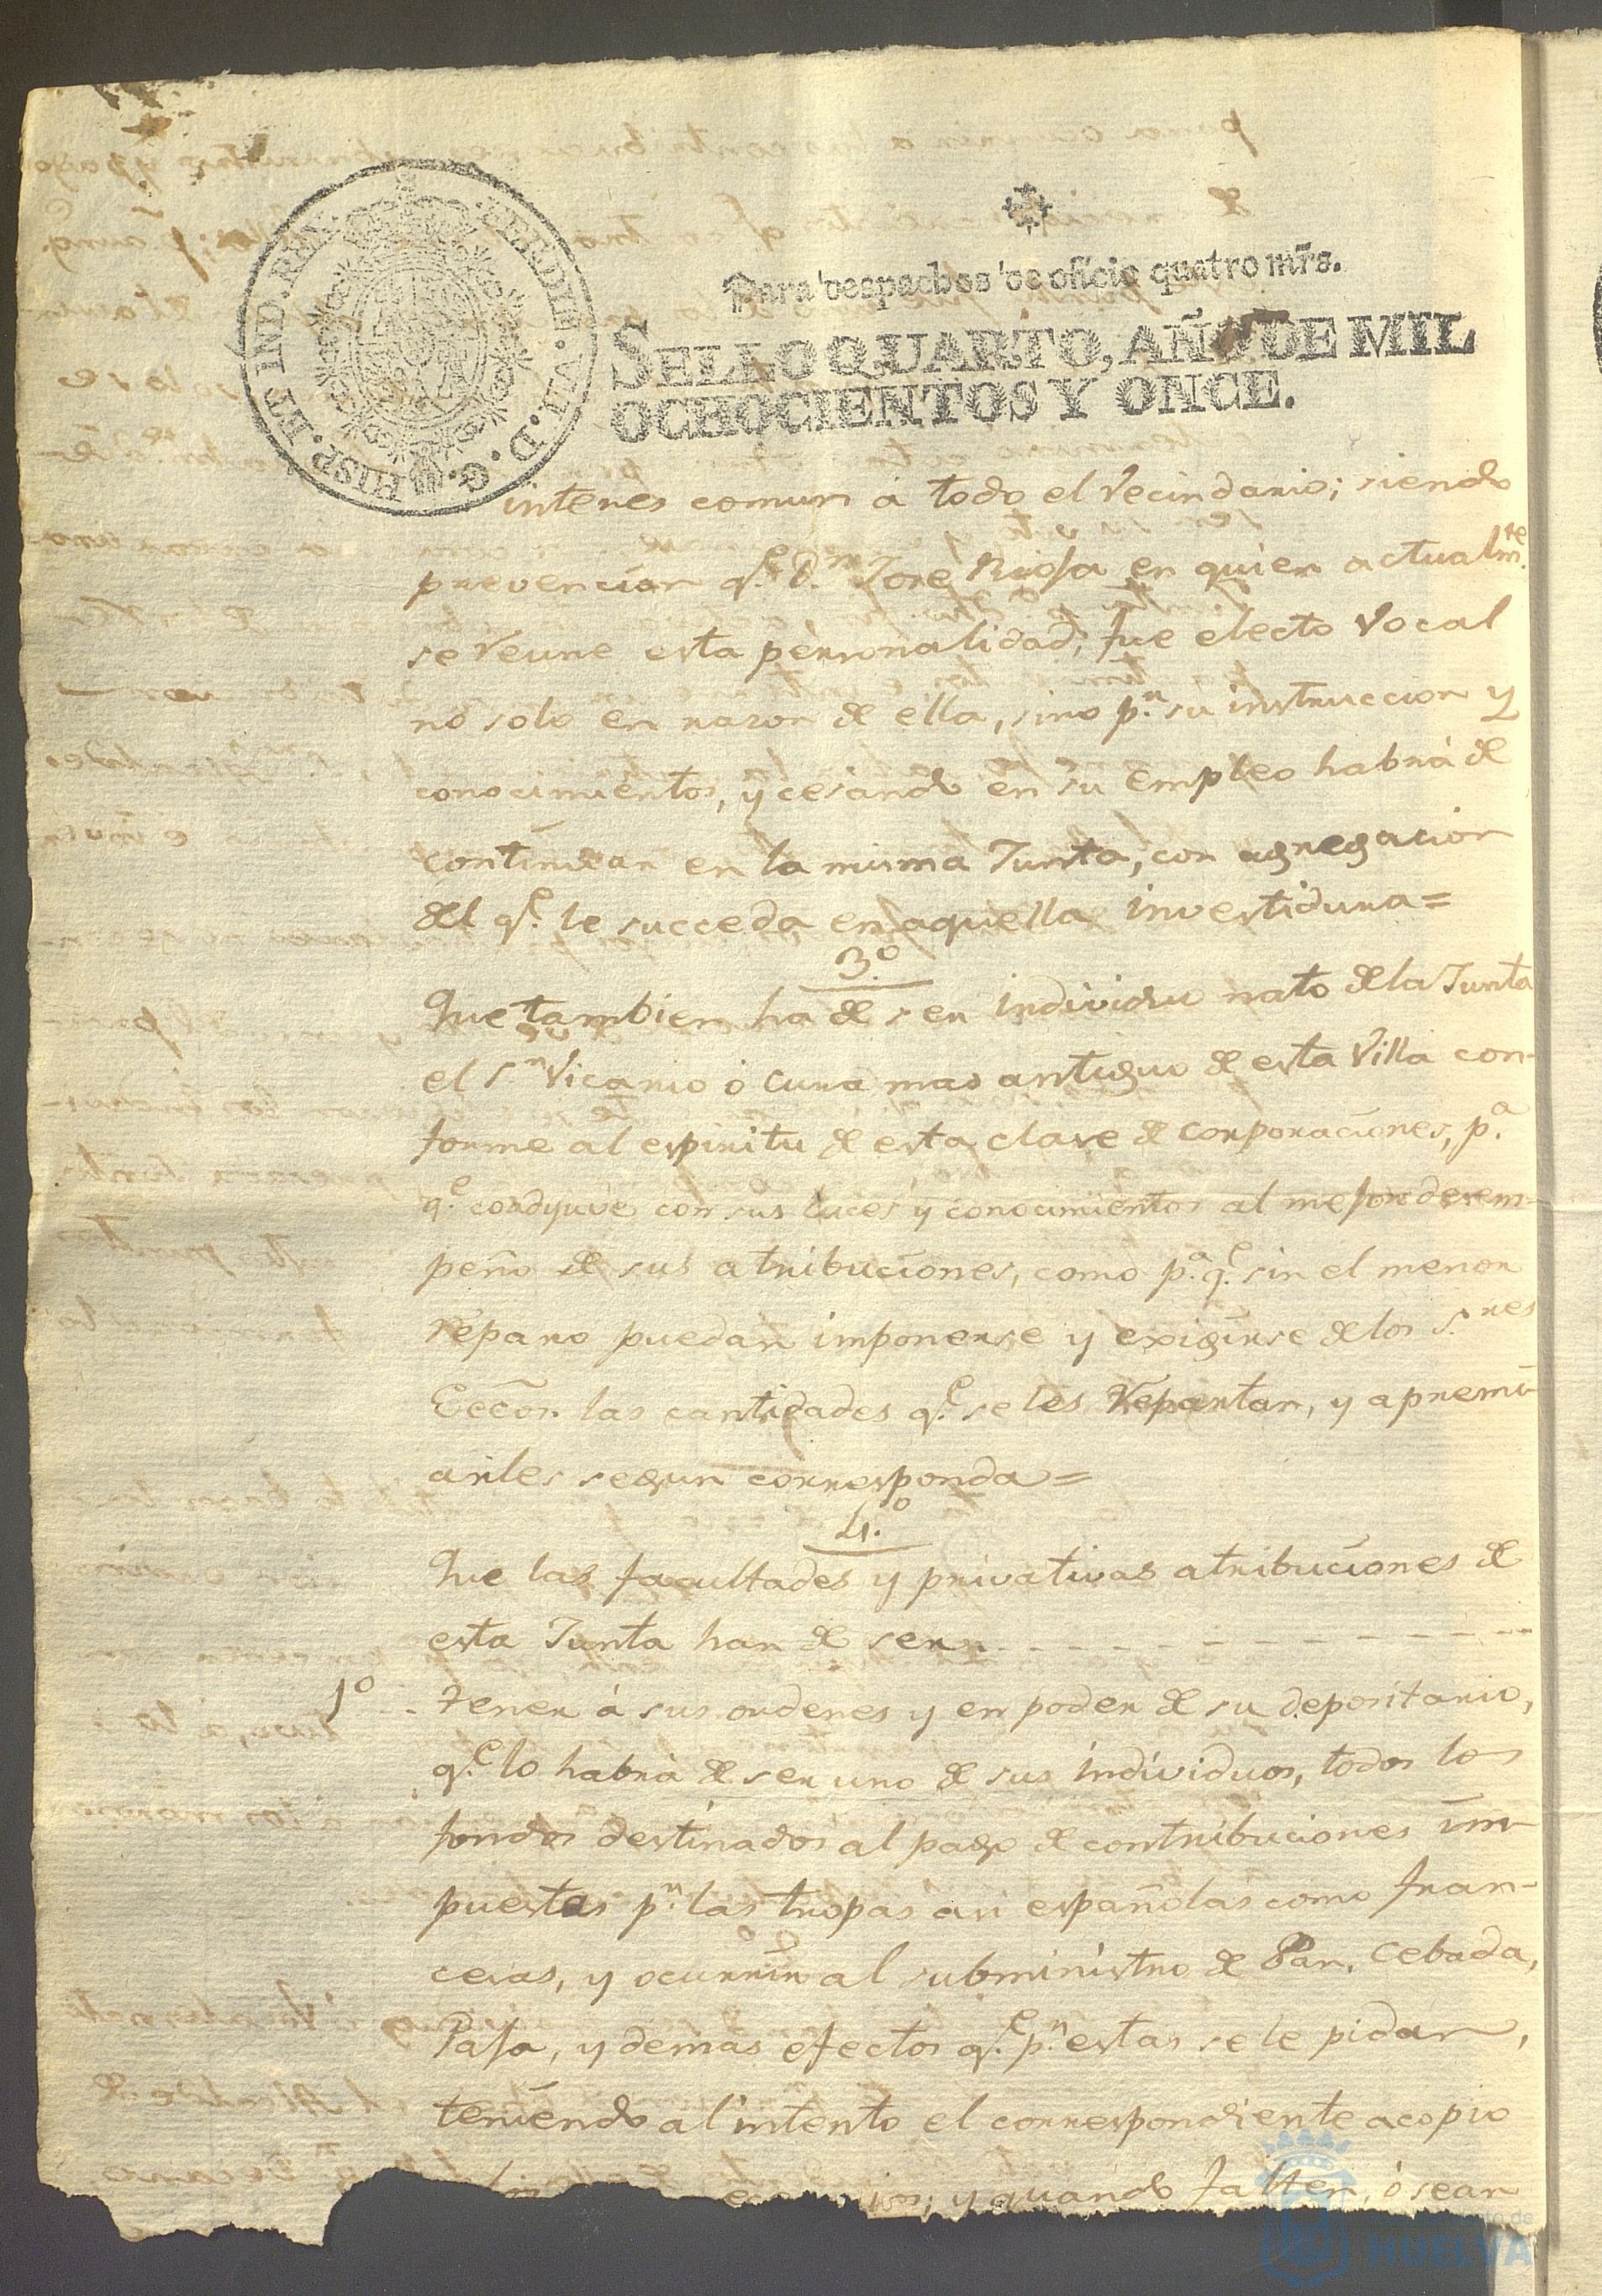 FERDIN. VII. D. G. HISP. ET IND. REX.
Para despachos de oficio quatro mrs.
SELLO QUARTO, AÑO DE MIL
OCHOCIENTOS Y ONCE.
interes comun á todo el vecindario; siendo
prevencion q.e D.n Jose Rioja en quien actualm.te
se reune esta personalidad, fue electo vocal
no solo en razon de ella, sino p.r su instruccion y
conocimientos, y cesando en su empleo habrá de
continuar en la misma Junta, con agregacion
del q.e le succeda en aquella investidura=
3.o
Que tambien ha de ser individuo nato de la Junta
el S.r Vicario ó Cura mas antiguo de esta Villa con-
forme al espiritu de esta clase de corporaciones, p.a
q.e coadyuve con sus luces y conocimientos al mejor desem-
peño de sus atribuciones, como p.a q.e sin el menor
reparo puedan imponerse y exigirse de los S.res
Eccōs. las cantidades q.e se les repartan, y apremi-
arles segun corresponda=
4.o
Que las facultades y privativas atribuciones de
esta Junta han de ser
1o Tener á sus ordenes y en poder de su depositario,
q.e lo habrá de ser uno de sus individuos, todos los
fondos destinados al pago de contribuciones im-
puestas p.r las tropas asi españolas como fran-
cesas, y ocurrir al subministro de Pan, Cebada,
Paja, y demas efectos q.e p.r estas se le pidan,
teniendo al intento el correspondiente acopio
y quando falten, ó sean
Ayuntamiento de
HUELVA